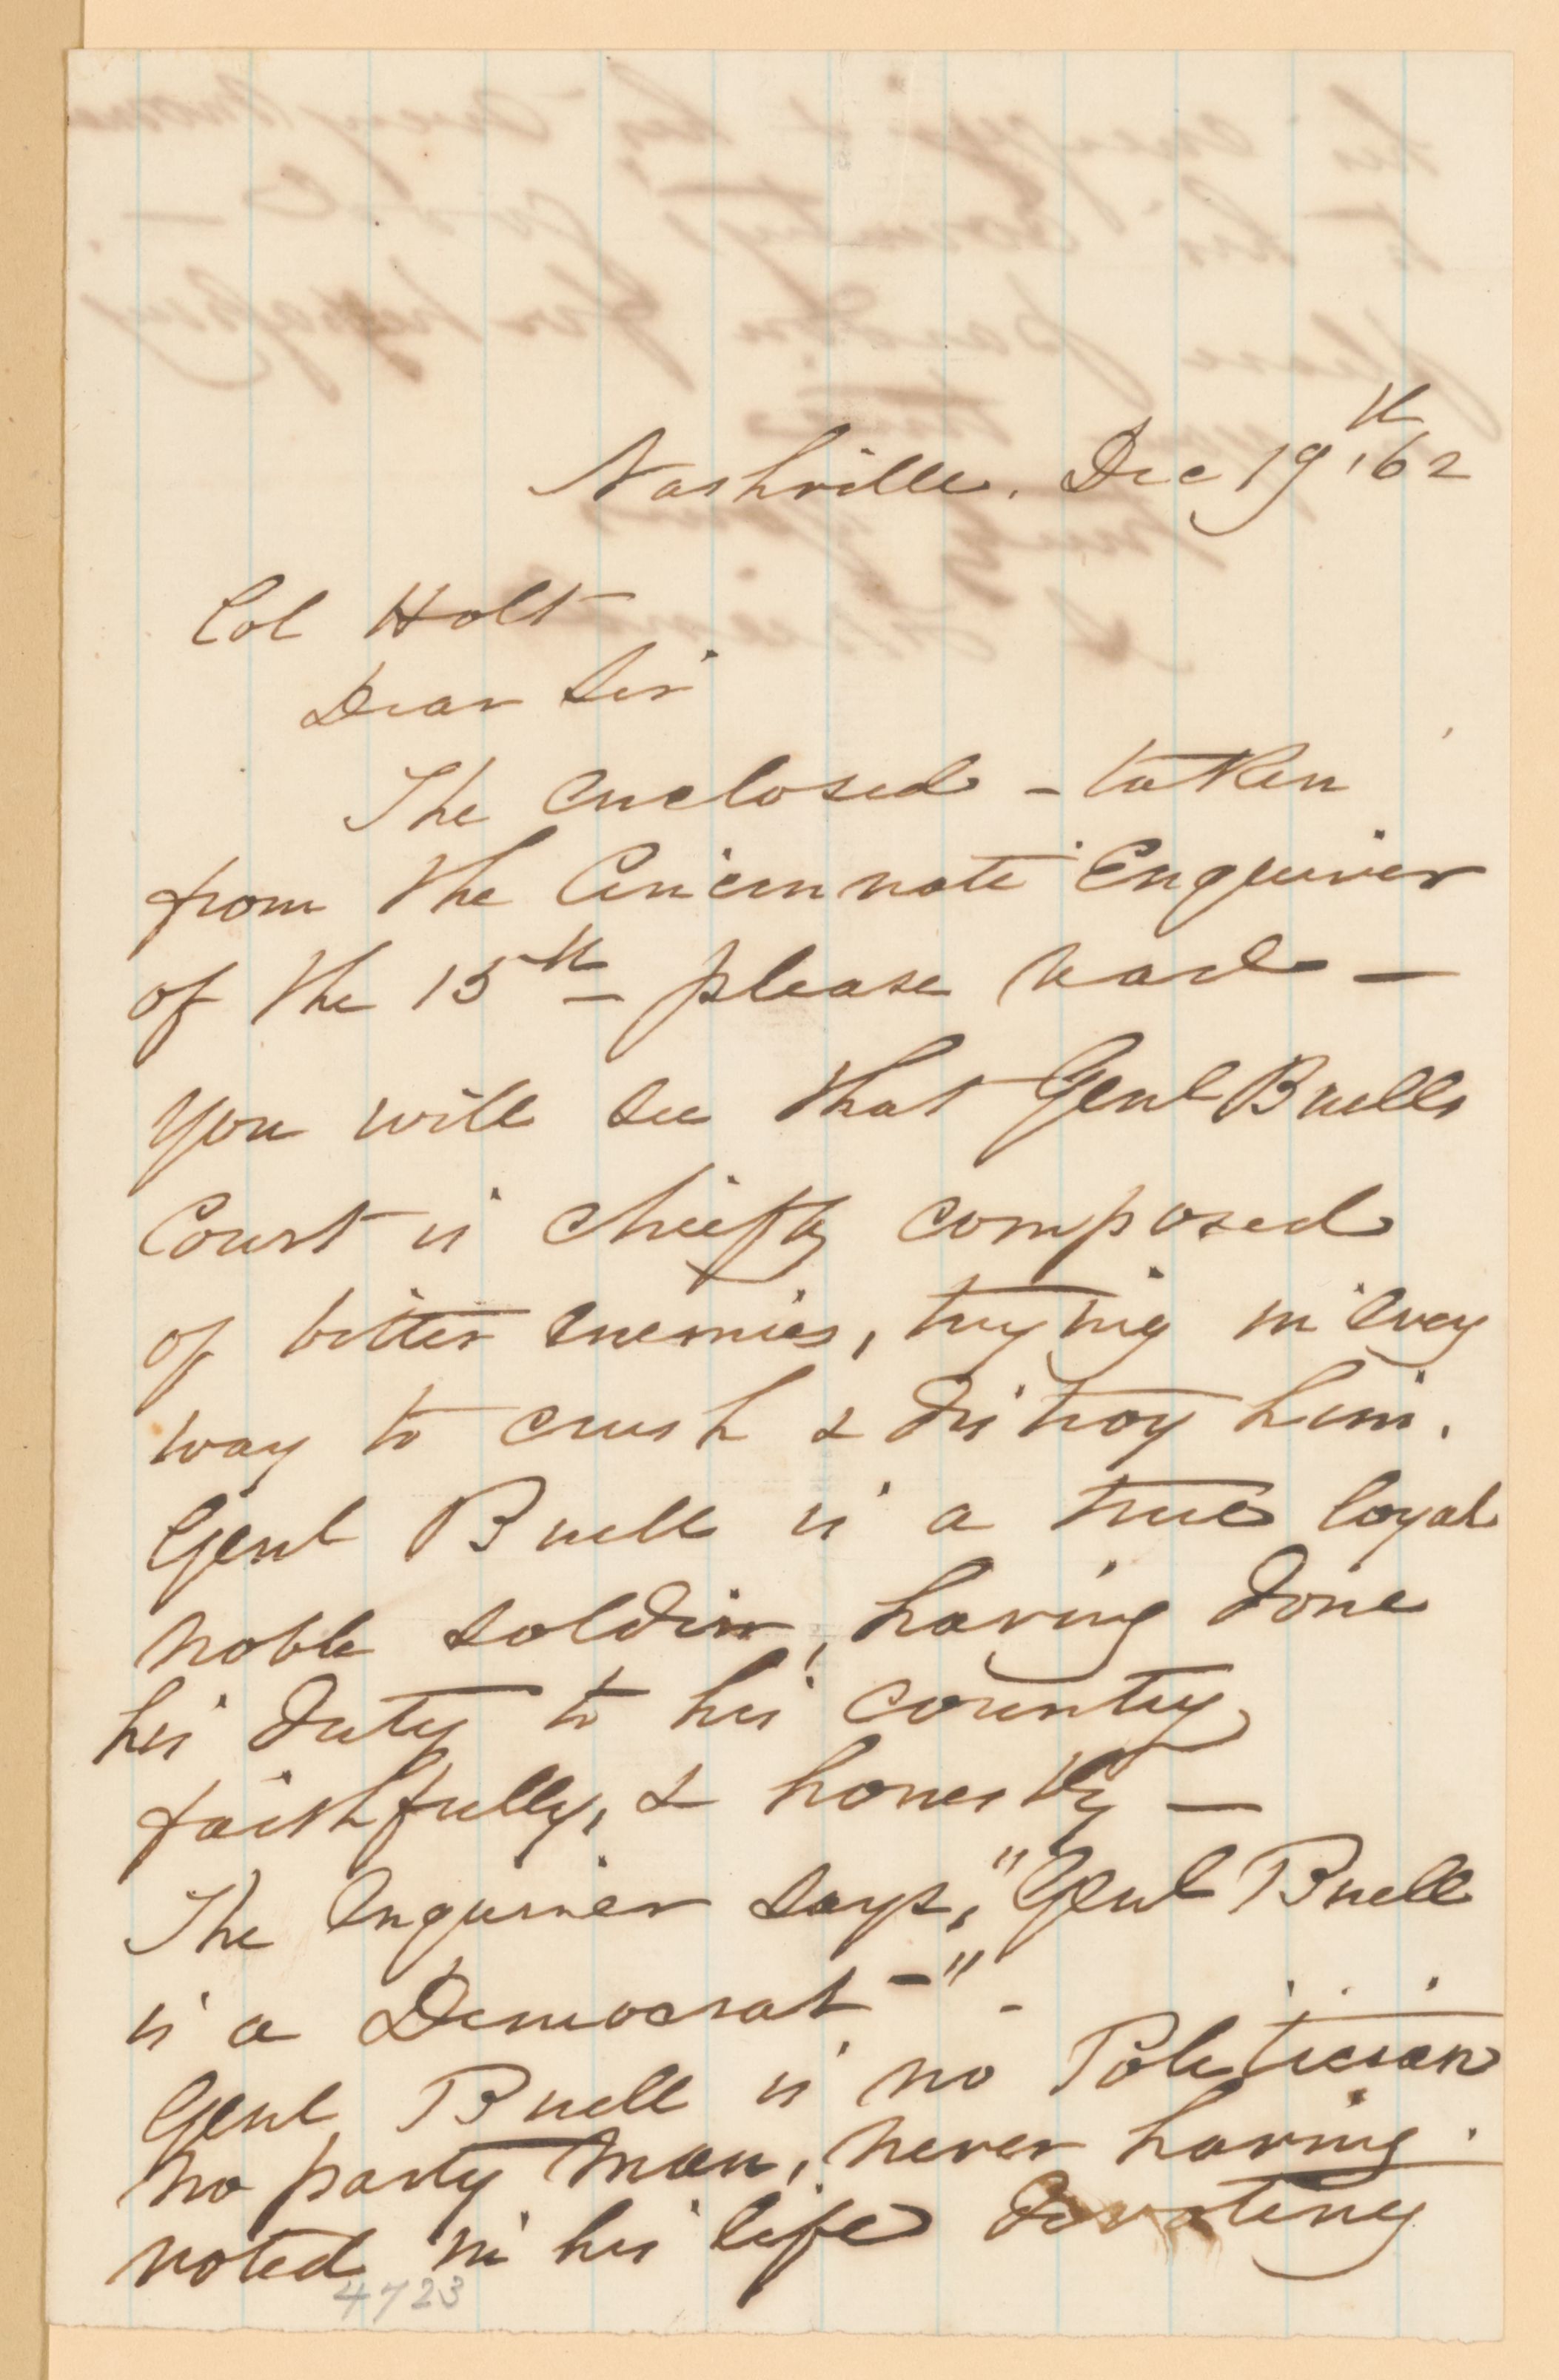 Nashville. Dec 19th, 62
Col Holt
Dear Sir
The enclosed - taken
from the Cincinnati Enquirer
of the 15th - please read -
you will see that Genl Buells
Court is chiefly composed
of bitter enemies, trying in every
way to crush & distroy him.
Genl Buell is a true loyal
noble soldier, having done
his duty to his country
faithfully, & honestly -
The Enquirer says, "Genl Buell
is a Democrat -" -
Genl Buell is no Politician
no party man, never having
voted in his life devoting
4723